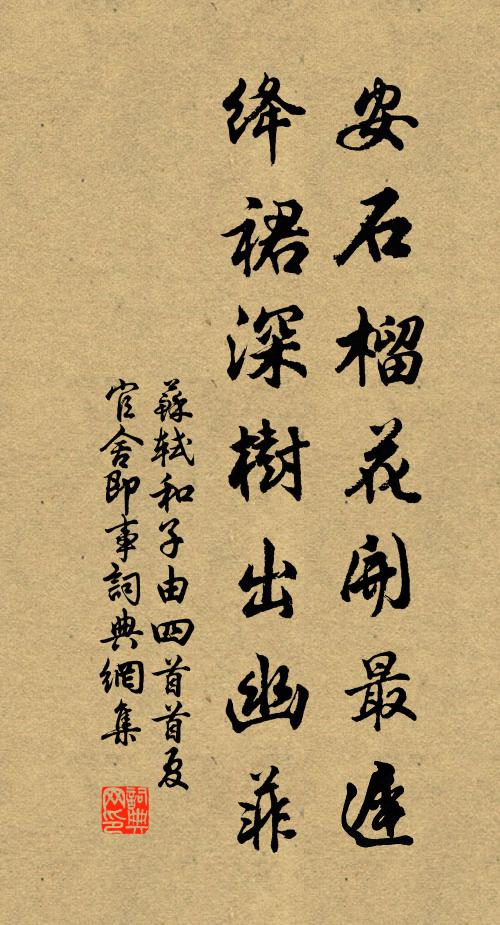 安石榴花開最遲
絳裙深樹出幽菲
蘇軾和子由四首首夏
官舍即事詞典網集
詞典
网印